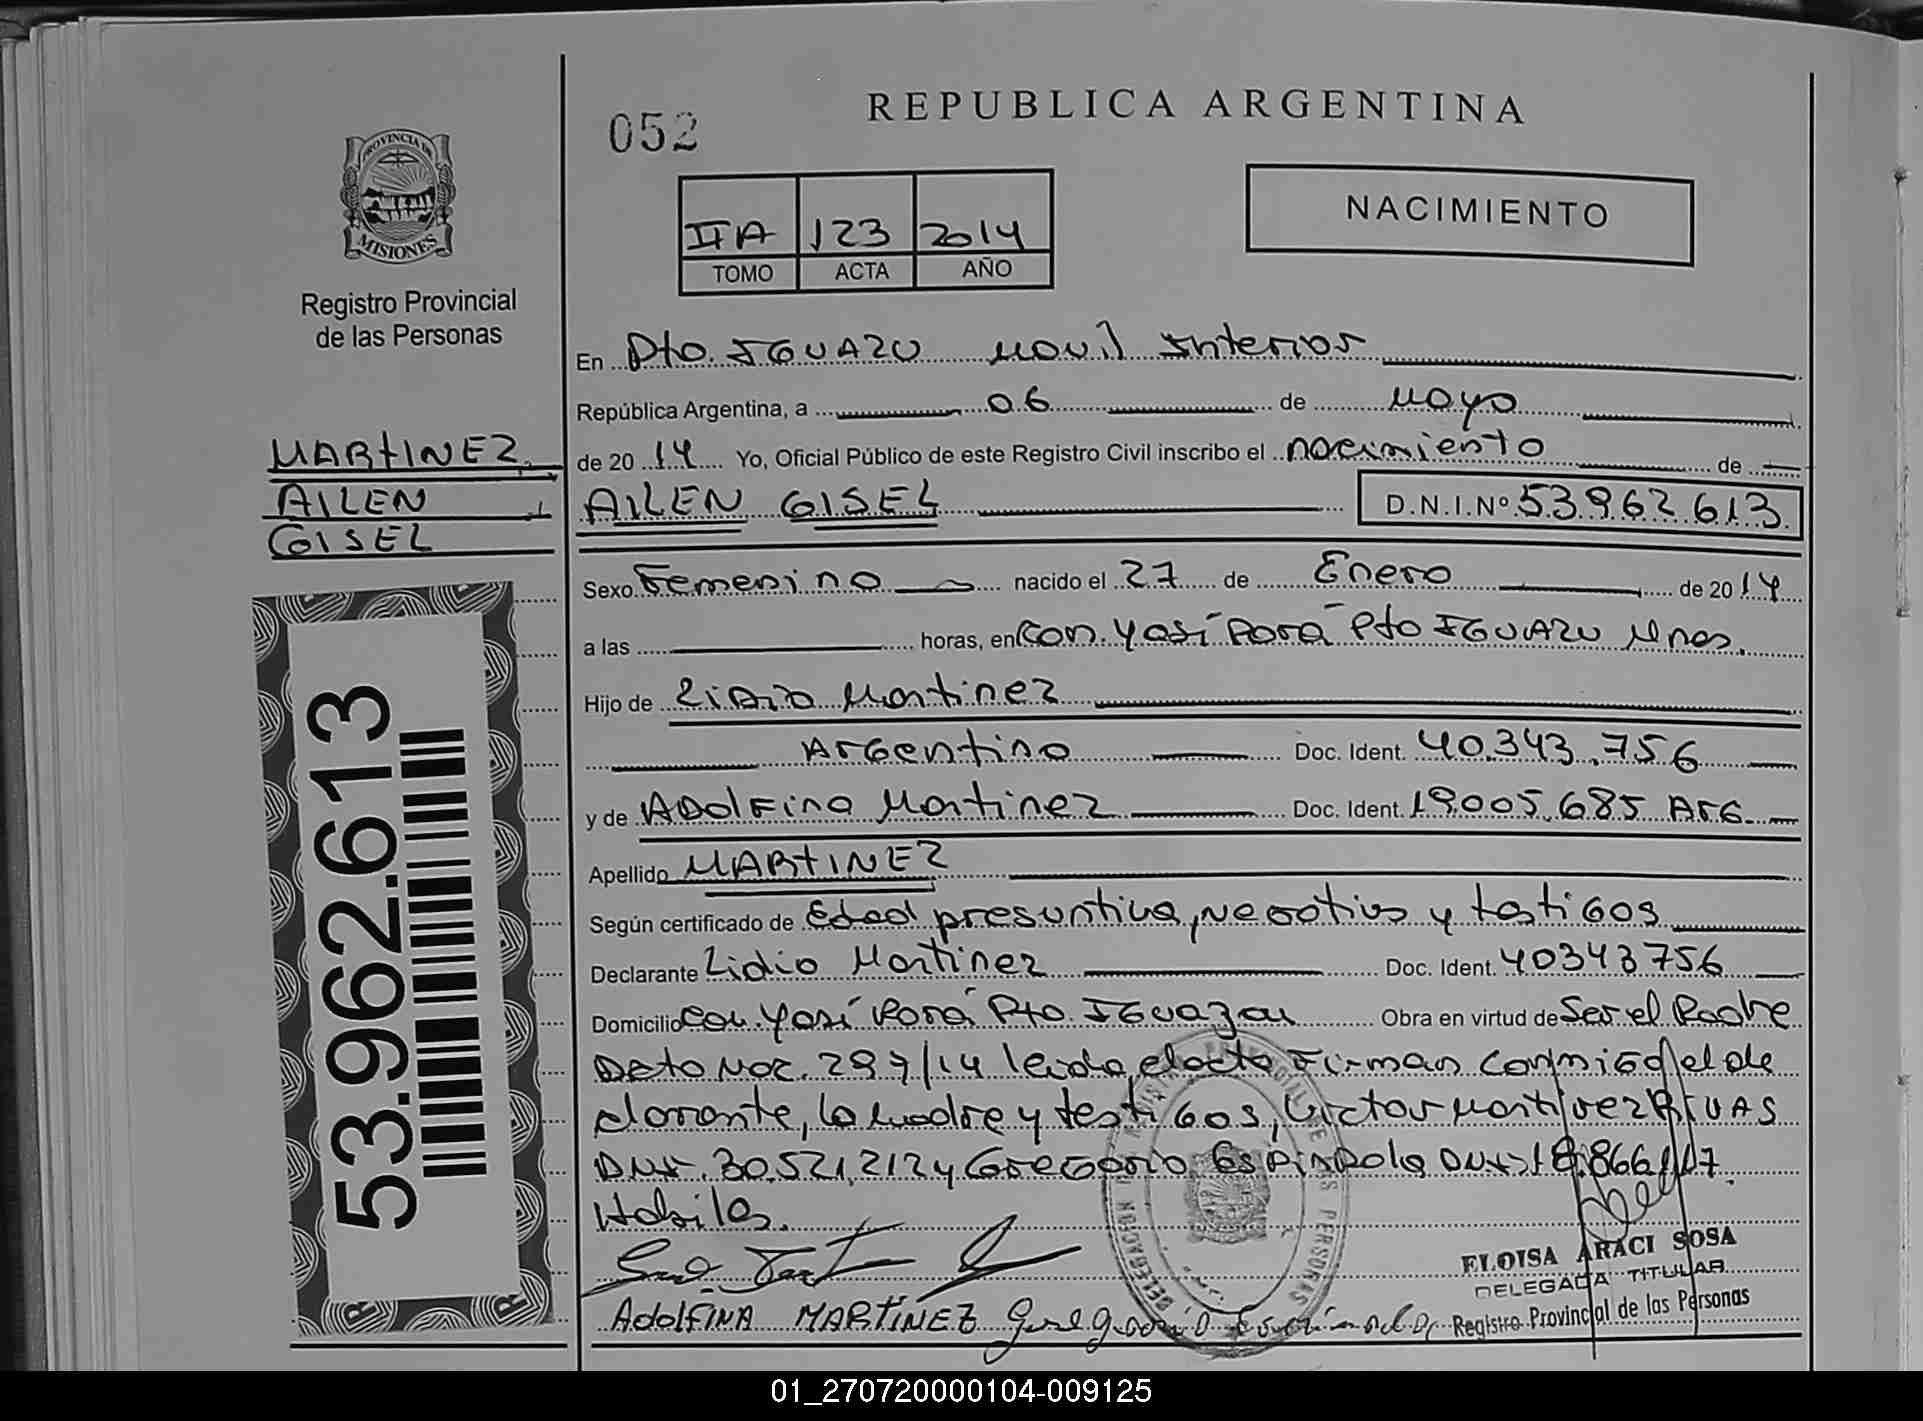 052
REPUBLICA ARGENTINA
PROVINCIA DE
MISIONES
Registro Provincial
de las Personas
IIA 123 2014
TOMO ACTA AÑO
NACIMIENTO
En Pto. IGUAZU Movil Interior
República Argentina, a 06 de Mayo
de 2014 Yo, Oficial Público de este Registro Civil inscribo el nacimiento de
MARTINEZ,
AILEN
GISEL
AILEN GISEL D.N.I.Nº 53962613
Sexo Femenino nacido el 27 de Enero de 2014
a las horas, en Com. Yasí Porá Pto IGUAZU Mnes.
Hijo de Lidio Martinez
Argentino Doc. Ident. 40.343.756
y de Adolfina Martinez Doc. Ident. 19.005.685 Arg
Apellido MARTINEZ
Según certificado de Edad presuntiva, negativo y testigos
Declarante Lidio Martinez Doc. Ident. 40343756
Domicilio Com. Yasí Porá Pto. Iguazu Obra en virtud de Ser el Padre
Dcto Nac. 297/14 leida el acta Firman conmigo el de
clarante, la Madre y testigos, Victor Martinez RIVAS
DNI. 30.521.212 y Gregorio Espindola DNI. 18.866.117
Habiles.
53.962.613
ELOISA ARACI SOSA
DELEGADA TITULAR
Registro Provincial de las Personas
AdolFINA MARTÍNEZ
01_270720000104-009125